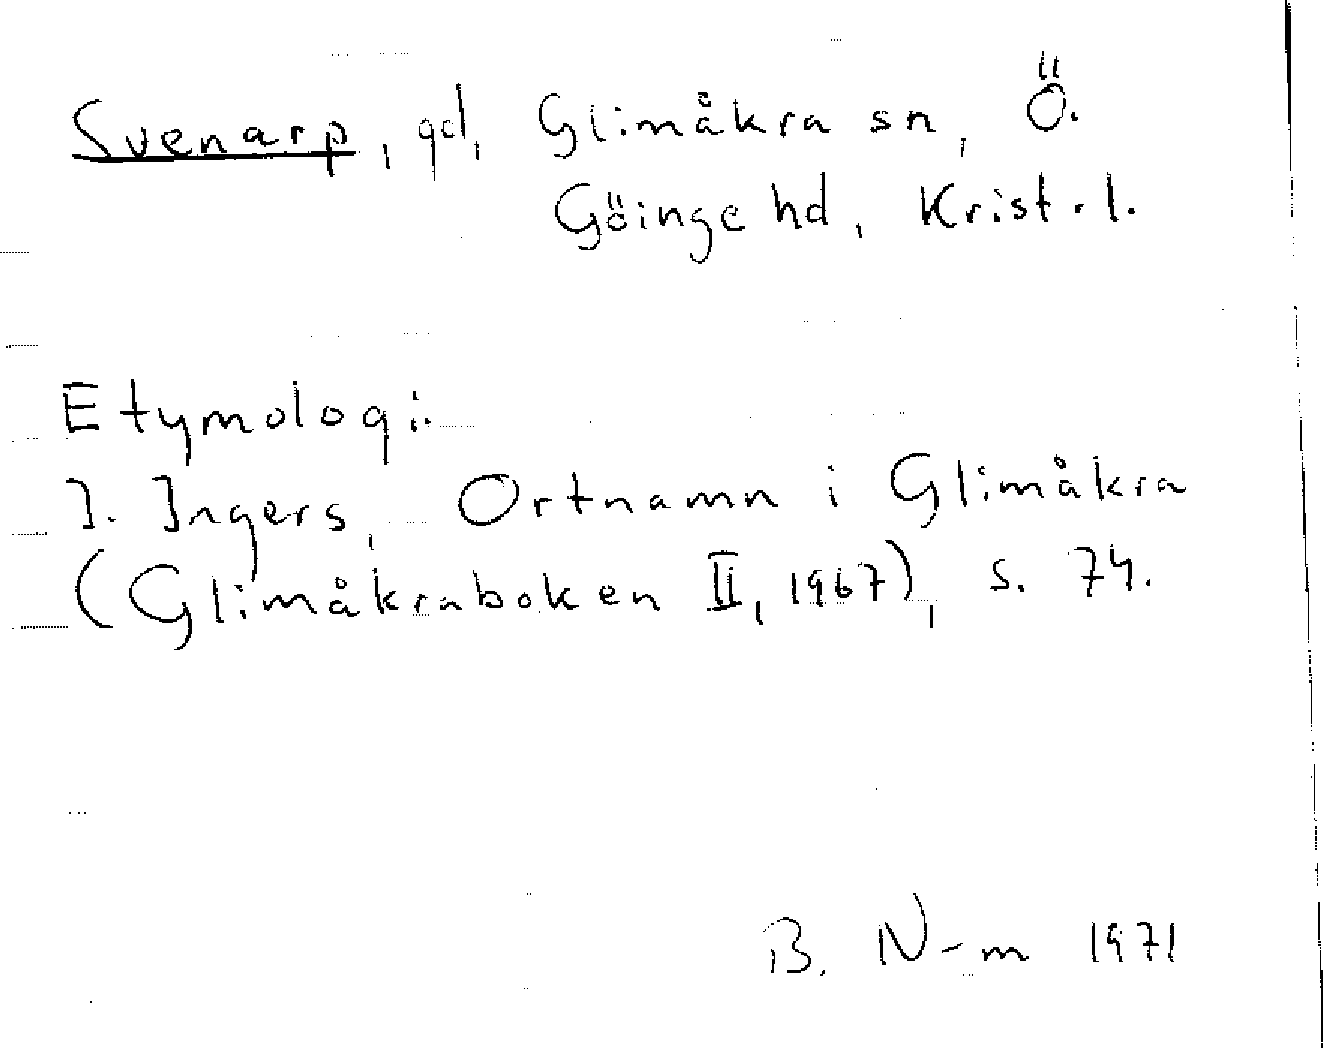 Svenarp, gd, Glimåkra sn, Ö.
Göinge hd, Krist. l.
Etymologi:
I. Ingers, Ortnamn i Glimåkra
(Glimåkraboken II, 1967), s. 74.
B. N-m 1971